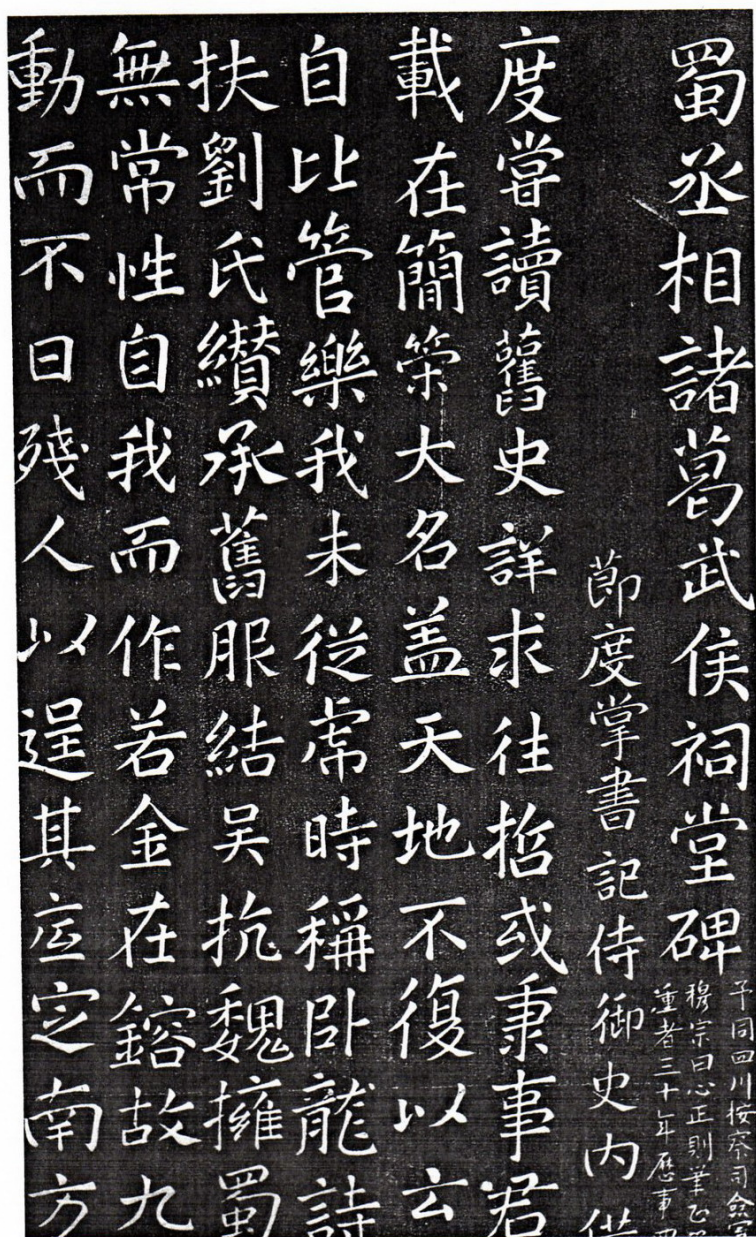 蜀丞相諸葛武侯祠堂碑
子同四川按察司僉
穆宗曰心正則筆正
重者三十年歷事
節度掌書記侍御史内供
度嘗讀舊史詳求往哲或秉事君
載在簡策大名盖天地不復以云
自比管樂我未從虎時稱卧龍詩
扶劉氏纘承舊服結吴抗魏擁蜀
無常性自我而作若金在鎔故九
動而不曰殘人以逞其底定南方